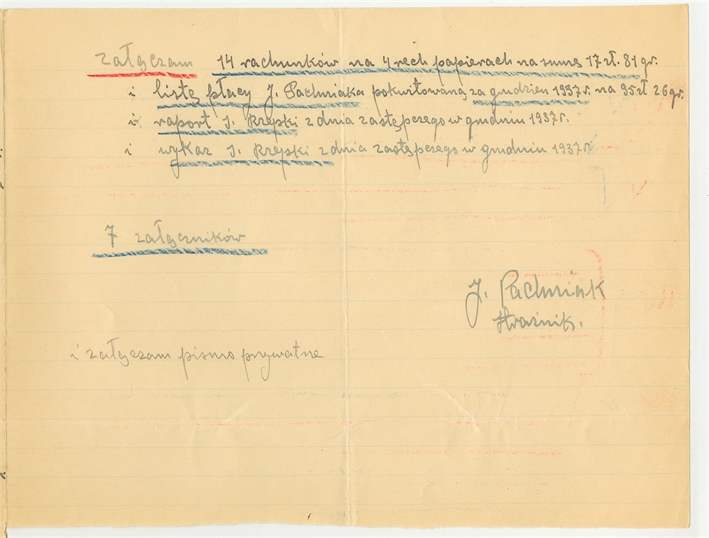 załączam 14 rachunków na 4rech papierach na sumę 17 zł. 81 gr.
i listę płacy J. Pachniaka pokwitowaną za grudzień 1937 r. na 95 zł 26 gr.
i raport J. Krępski z dnia zastępczego w grudniu 1937 r.
i wykaz J. Krępski z dnia zastępczego w grudniu 1937 r.
7 załączników
J. Pachniak
Strażnik.
i załączam pismo prywatne